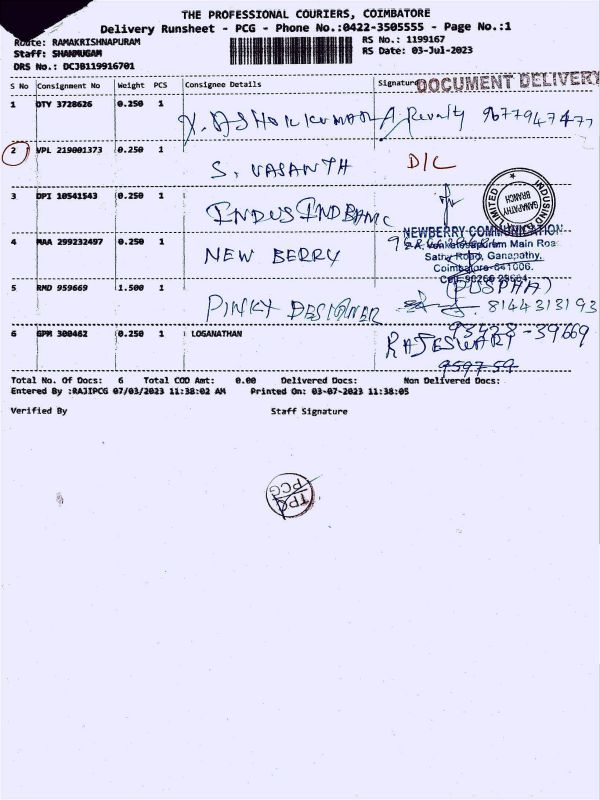 THE PROFESSIONAL COURIERS, COIMBATORE
Delivery Runsheet - PCG - Phone No.:0422-3505555 - Page No.:1
Route: RAMAKRISHNAPURAM RS No.: 1199167
Staff: SHANMUGAM RS Date: 03-Jul-2023
DRS No.: DCJB119916701
S No Consignment No Weight PCS Consignee Details Signature
DOCUMENT DELIVERY
1 DTY 3728626 0.250 1
2 VPL 219001373 0.250 1
S. VASANTH D/C
3 DPI 10541543 0.250 1
INDUSIND BANC
INDUSIND LIMITED
GANAPATHY BRANCH
4 MAA 299232497 0.250 1
NEW BERRY
NEWBERRY COMMUNICATION
Venkatesapuram Main Road
Sathy Road, Ganapathy.
Coimbatore-641006.
5 RMD 959669 1.500 1
PINKY DESIGNER
(PUSPHA)
8144313193
6 GPM 300462 0.250 1 LOGANATHAN
RAJESWARY
93428-39669
Total No. Of Docs: 6 Total COD Amt: 0.00 Delivered Docs: Non Delivered Docs:
Entered By :RAJIPCG 07/03/2023 11:38:02 AM Printed On: 03-07-2023 11:38:05
Verified By Staff Signature
TPC
PCG